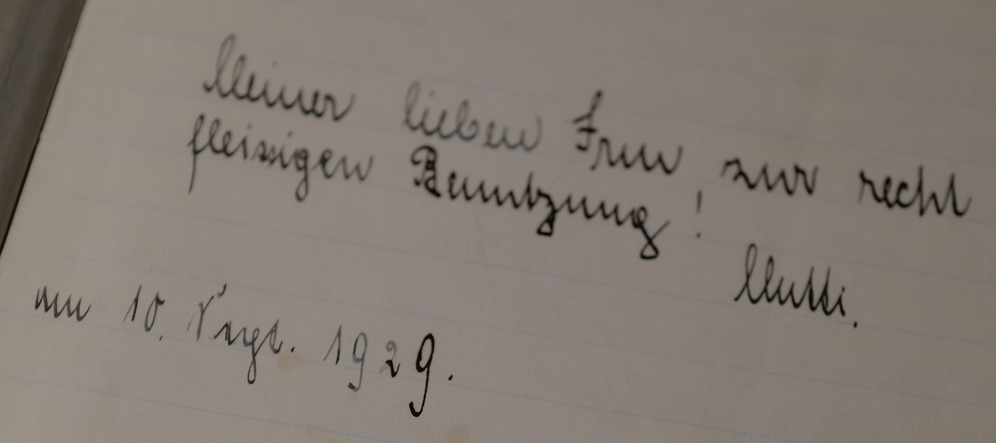 Meiner lieben Frau, zur recht
fleissigen Benutzung!
Mutti.
am 10. Sept. 1929.